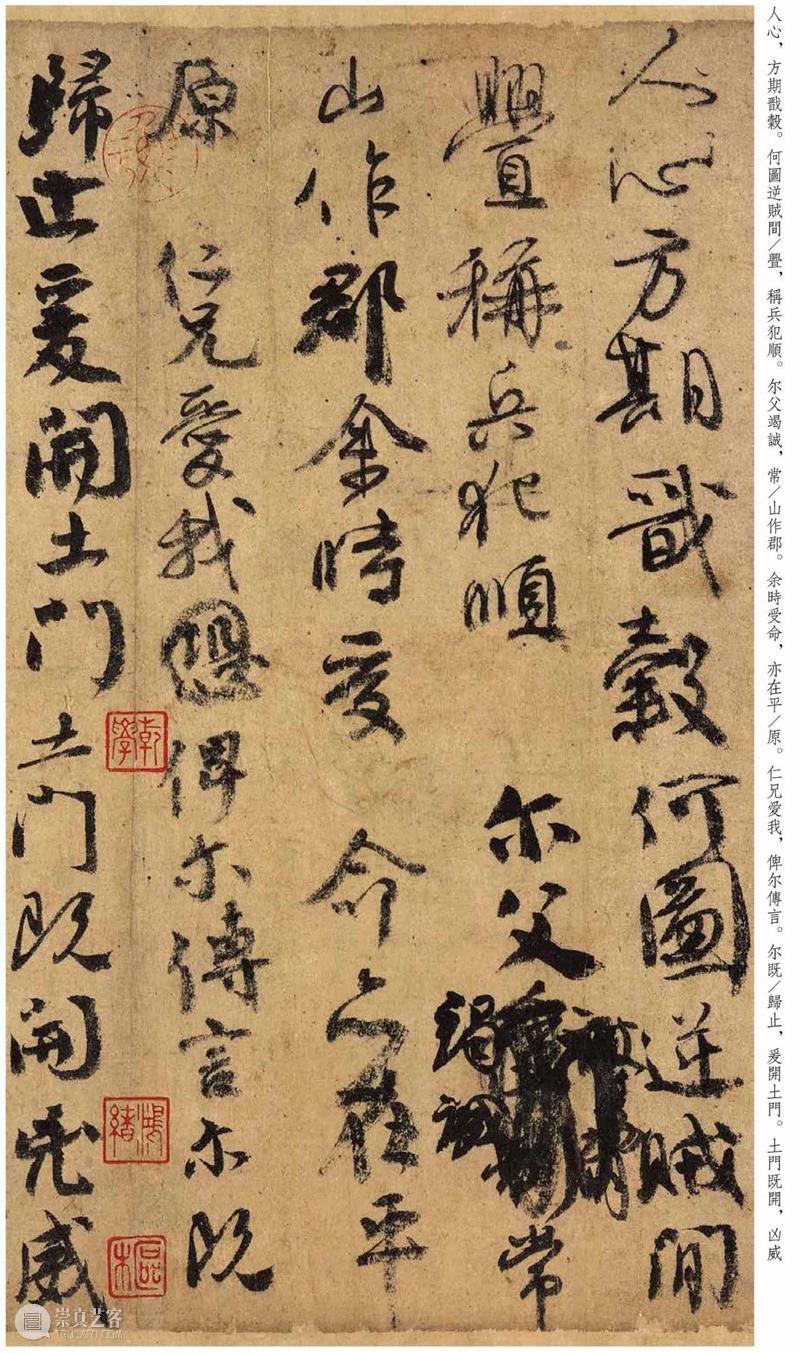 人心，方期戩穀。何圖逆賊間／舋，稱兵犯順。尔父竭誠，常／山作郡。余時受命，亦在平／原。仁兄愛我，俾尔傳言。尔既／歸止，爰開土門。土門既開，凶威
人心方期戩穀何圖逆賊間
舋稱兵犯順尔父竭誠常
山作郡余時受命亦在平
原仁兄愛我俾尔傳言尔既
歸止爰開土門土門既開凶威
乾學
鴻緒
崇真艺客